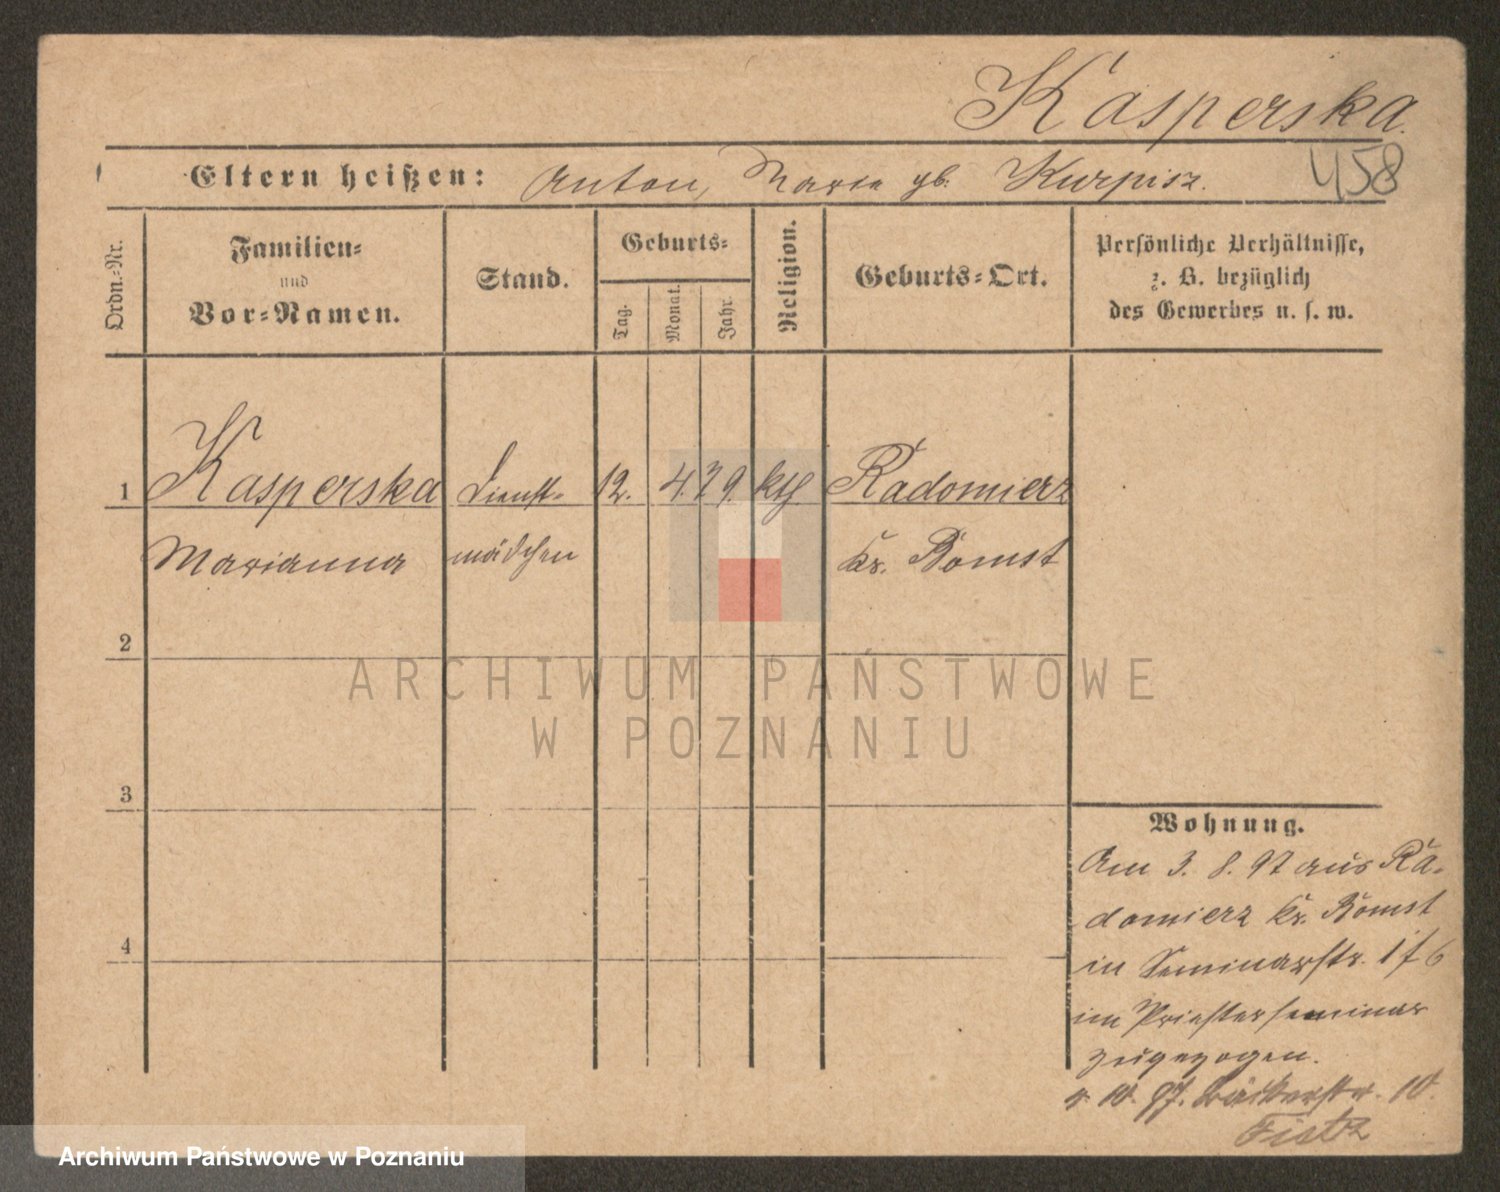 Kasperska.
Eltern heißen: Anton, Marie gb. Kurpisz.
458
Ordn.-Nr.
Familien-
und
Vor-Namen.
Stand.
Geburts-
Tag.
Monat.
Jahr.
Religion.
Geburts-Ort.
Persönliche Verhältnisse,
z. B. bezüglich
des Gewerbes u. s. w.
1 Kasperska Dienst- 12. 4. 79. kth Radomierz
Marianna mädchen Kr. Bomst
2
3
4
Wohnung.
Am 3. 8. 97 aus Ra-
domierz Kr. Bomst
in Seminarstr. 1/6
im Priesterseminar
zugezogen.
10. 97. Bäckerstr. 10.
ARCHIWUM PAŃSTWOWE
W POZNANIU
Archiwum Państwowe w Poznaniu